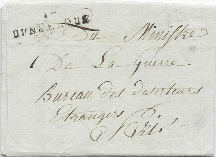 DUNKERQUE
Au Ministre
De La guerre
Bureau des deserteurs
Etrangers Paris